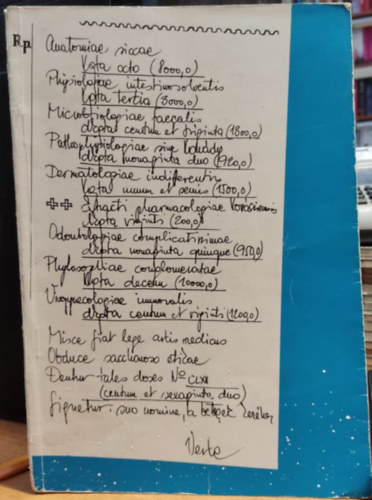 Rp
Anatomiae siccae
kilota octo (8000,0)
Physiologiae intestinosolventis
kilota tertia (3000,0)
Microbiologiae faecalis
dkota centum et triginta (1300,0)
Pathophysiologiae sine
dkota nonaginta duo (920,0)
Dermatologiae indifferentis
unum et semis (1500,0)
++ pharmacologiae
dkota viginti (200,0)
Odontologiae complicatissimae
dkota nonaginta quinque (950,0)
Phylosophiae conglomeratae
decem (10000,0)
immoralis
dkota centum et viginti (1200,0)
Misce fiat lege artis medicus
Obduce saccharoso eticae
Dentur tales doses No CLXII
(centum et sexaginta duo)
Signetur: suo nomine, a beteg
Verte